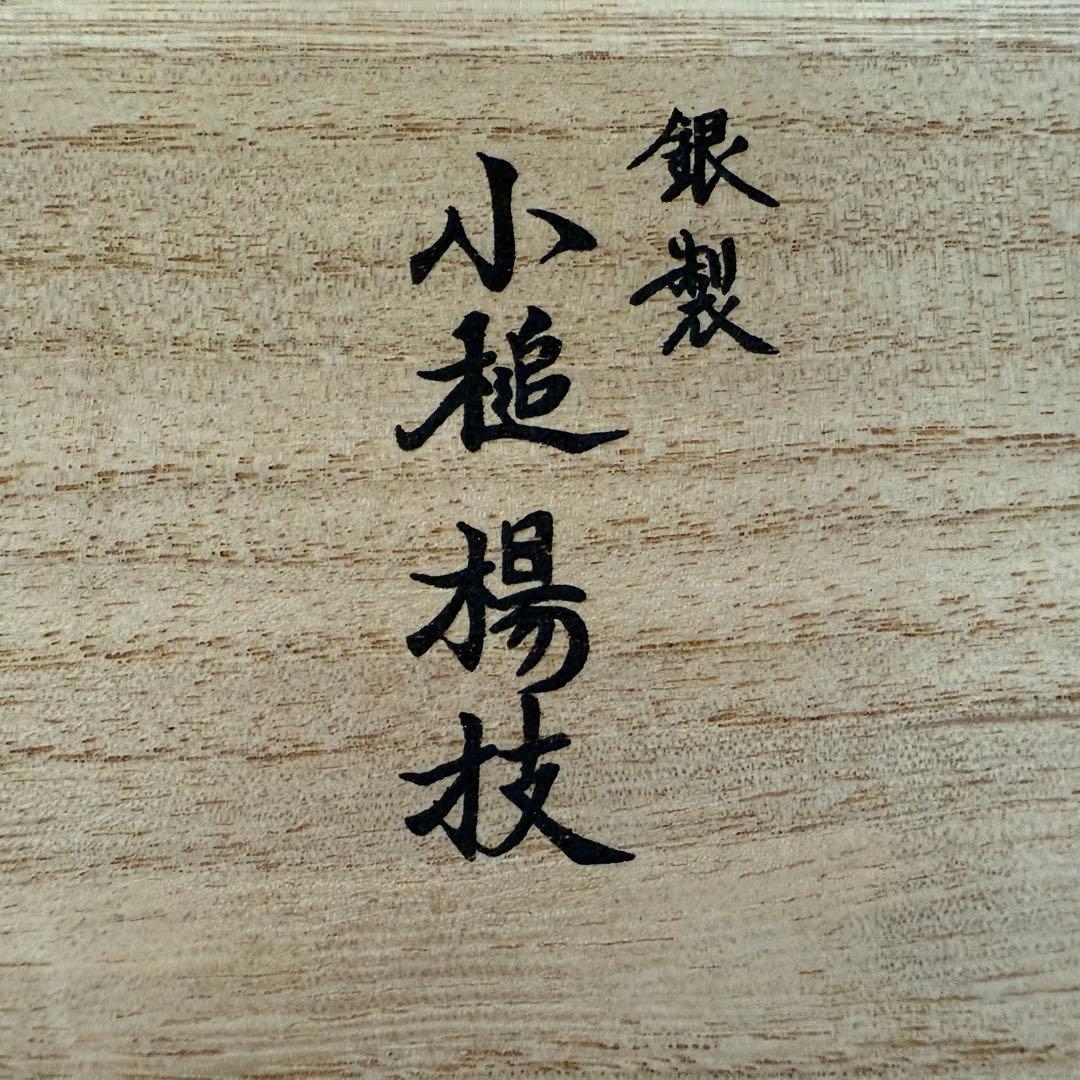 銀製
小槌楊枝